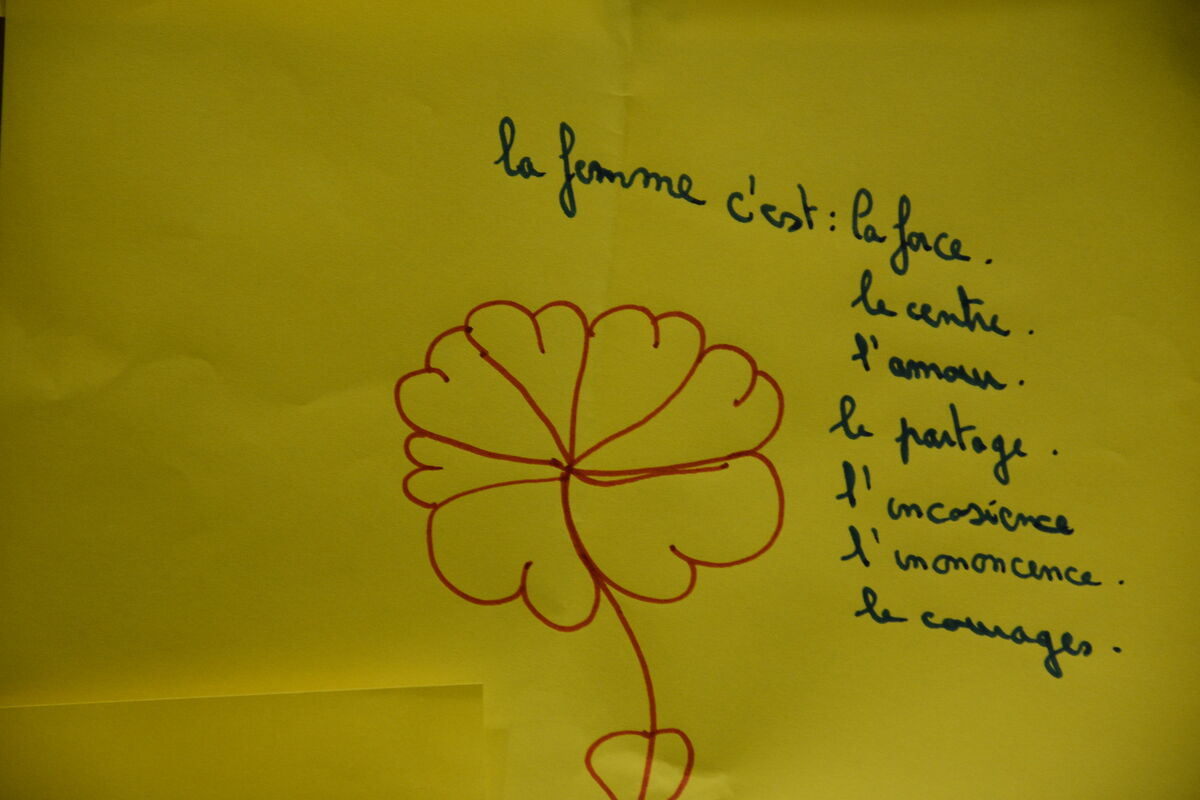 la femme c'est : la force.
le centre.
l'amour.
le partage.
l'incosience
l'inononcence.
le courages.